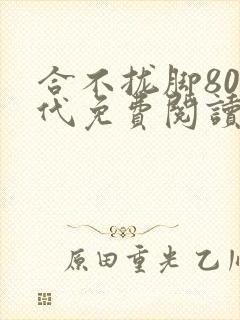 合不拢脚80
代免費閱讀
原田重光 乙川